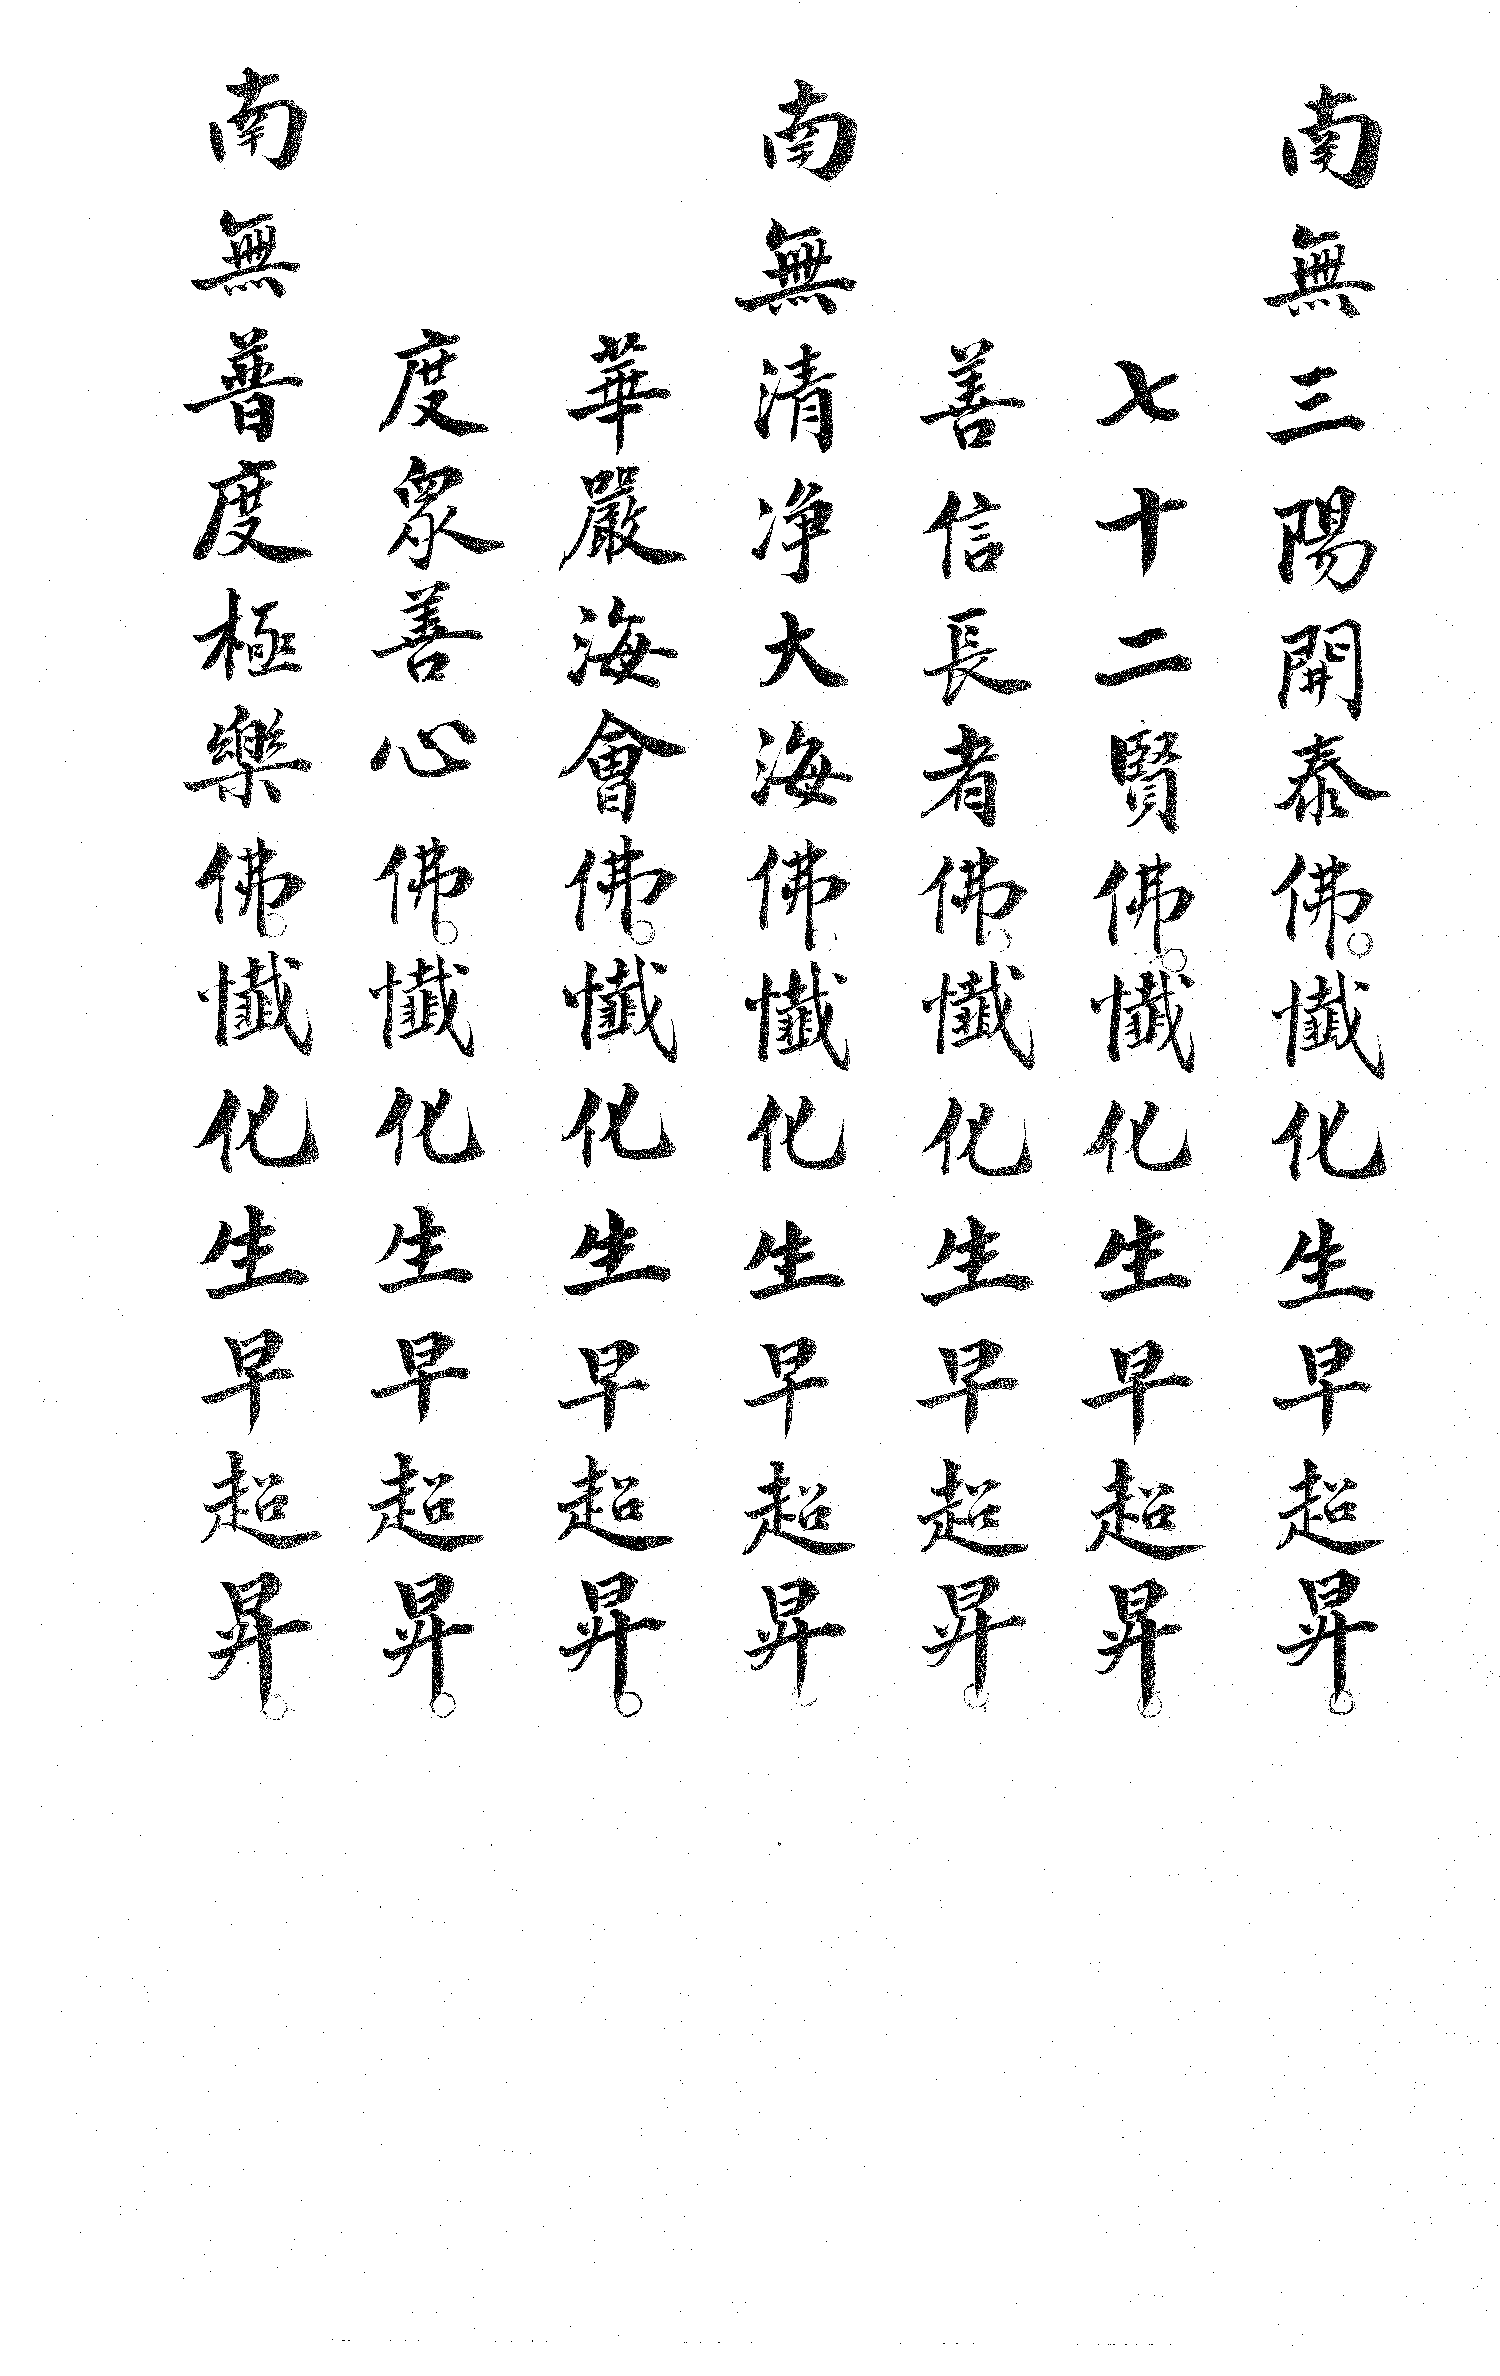 南無三陽開泰佛。懺化生早超昇。
七十二賢佛。懺化生早超昇。
善信長者佛。懺化生早超昇。
南無清净大海佛。懺化生早超昇。
華嚴海會佛。懺化生早超昇。
度眾善心佛。懺化生早超昇。
南無普度極樂佛。懺化生早超昇。